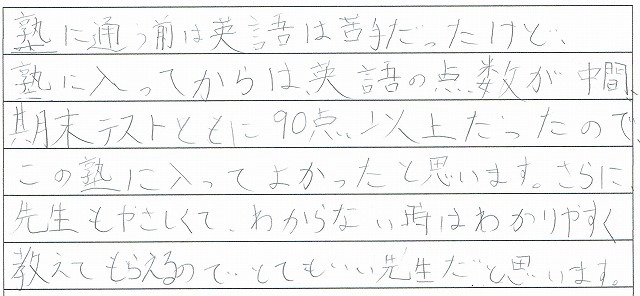 塾に通う前は英語は苦手だったけど、
塾に入ってからは、英語の点数が中間、
期末テストともに90点以上だったので、
この塾に入ってよかったと思います。さらに、
先生もやさしくて、わからない時はわかりやすく
教えてもらえるので、とてもいい先生だと思います。